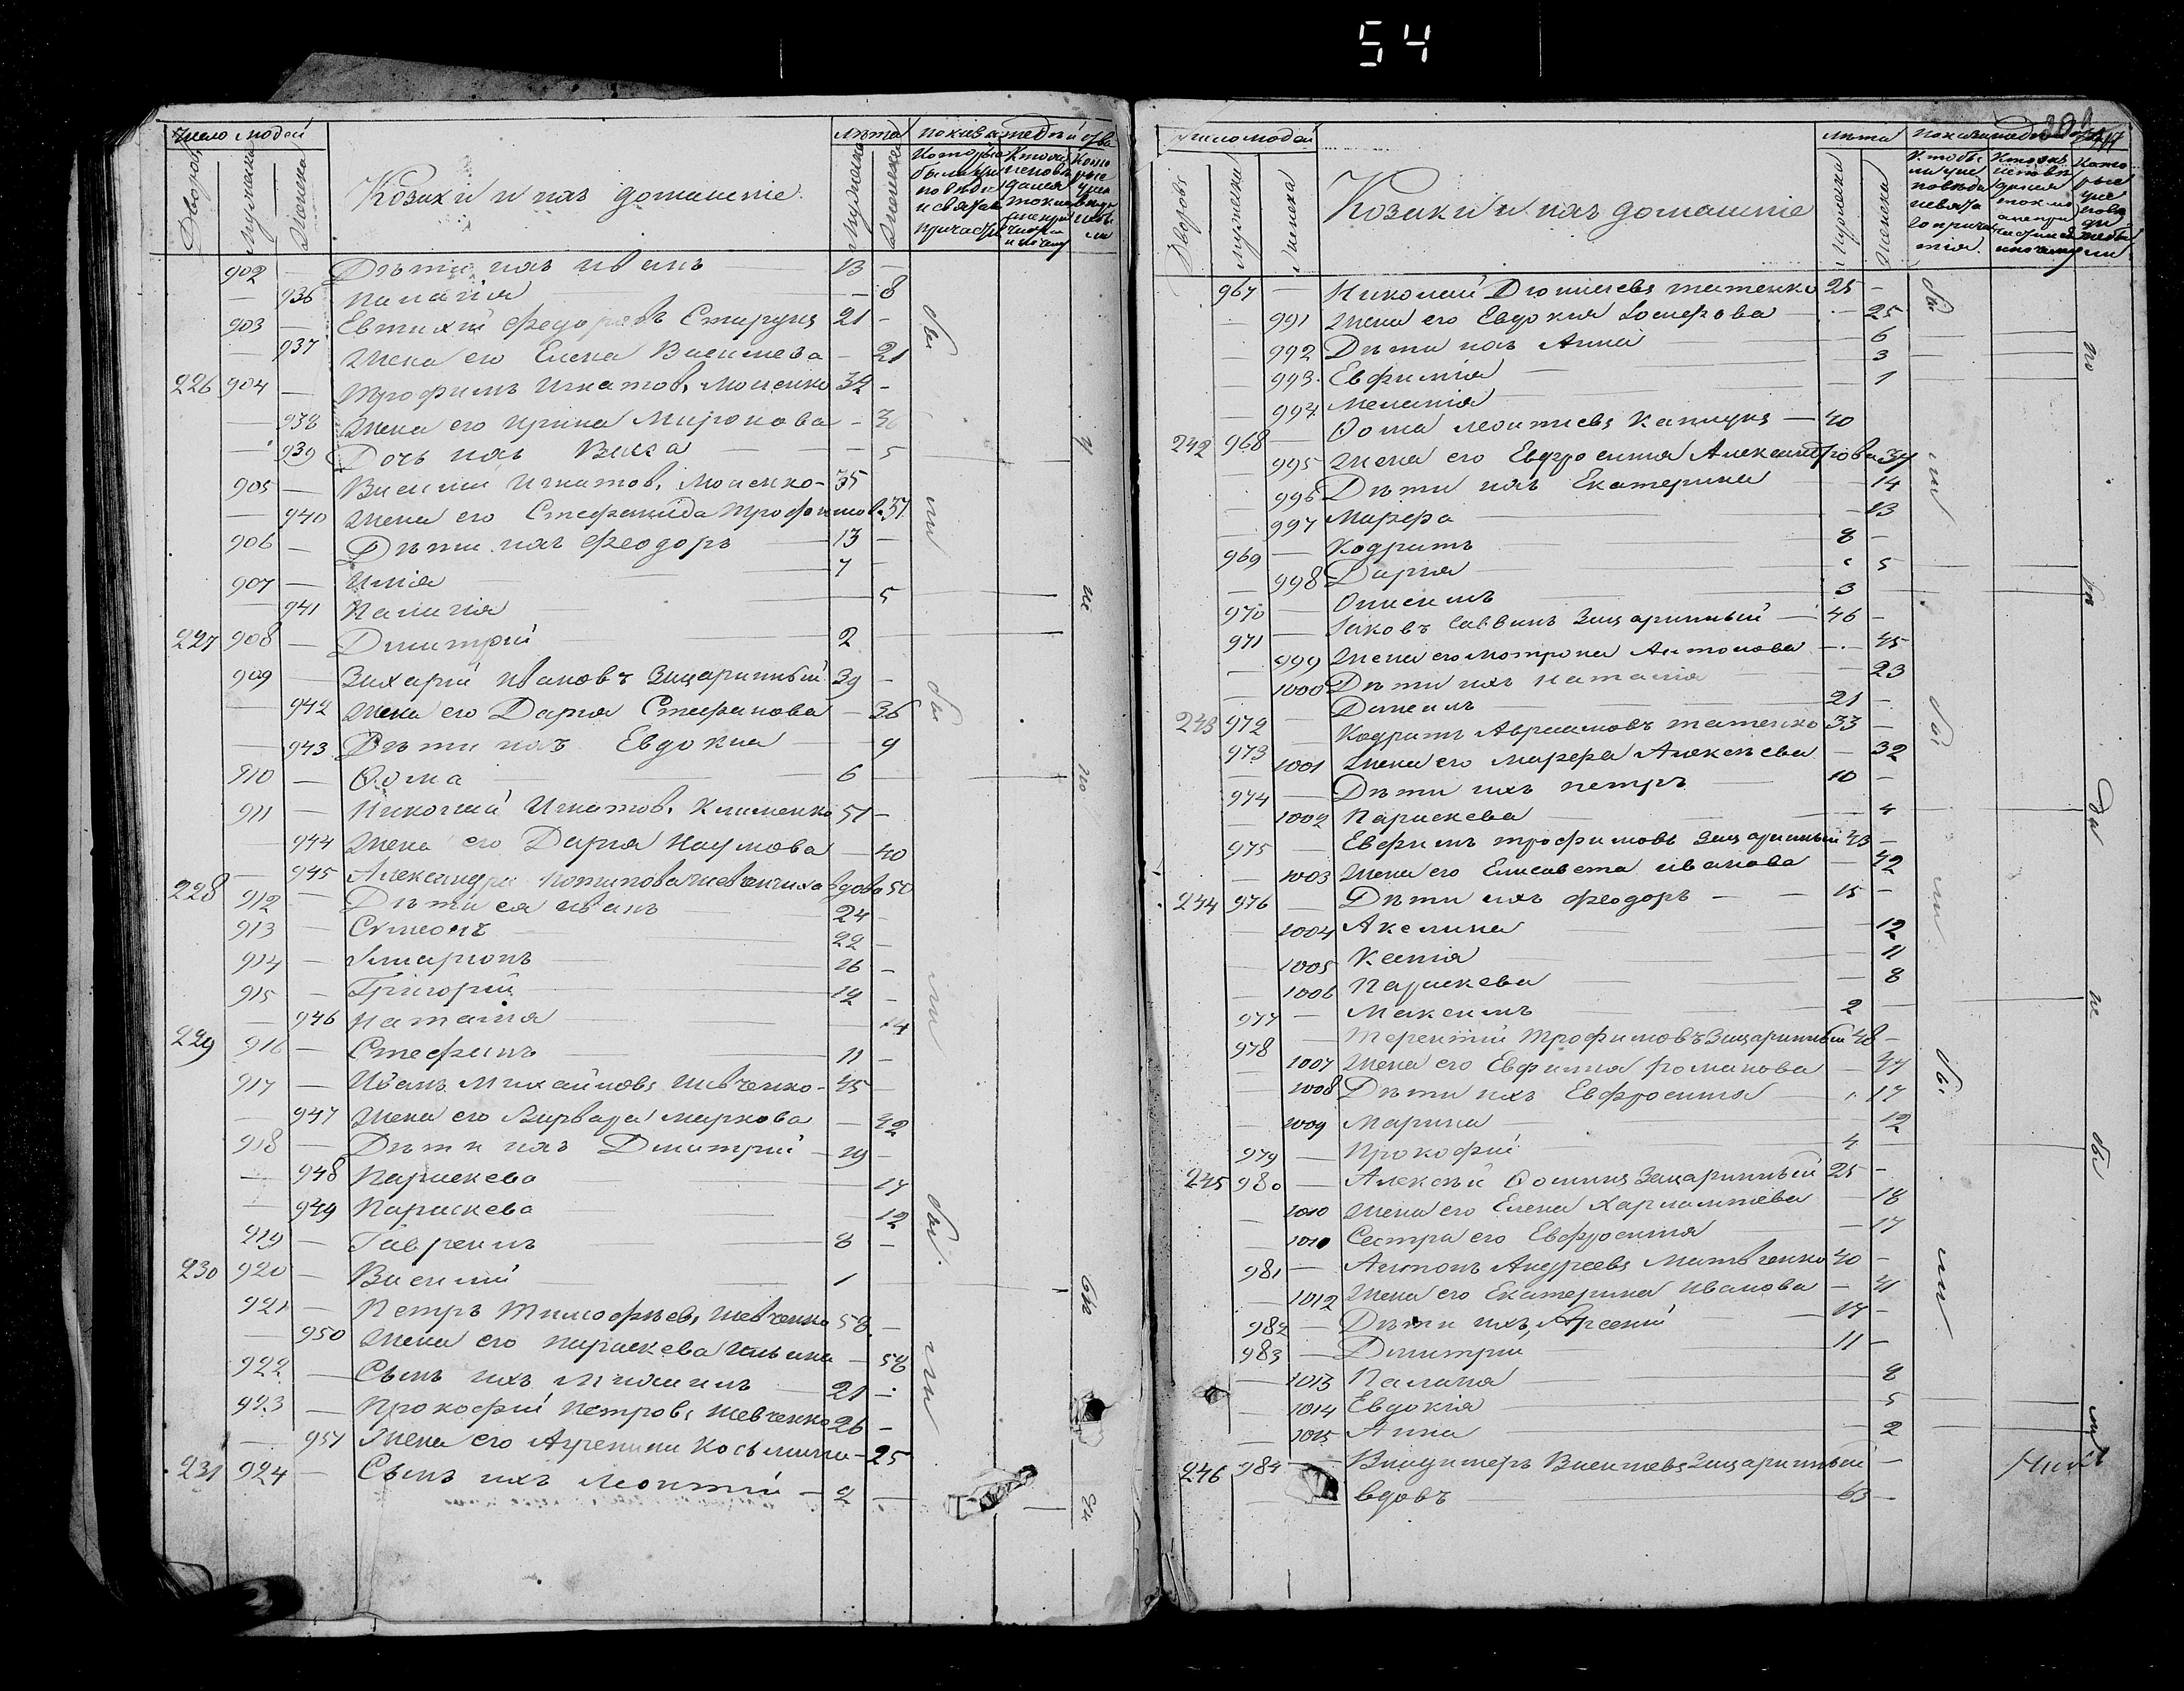 54
Число людей
Дворовъ
Мужеска
Женска
Козаки и ихъ домашніе
Лѣта
Мужеска
Женска
902 — Дѣти ихъ Иванъ 13 —
— 936 Палагія — 8
903 — Евтихій Федоровъ 21 —
— 937 Жена его Елена Васильева — 21
226 904 — Трофимъ Игнатовъ Моисенко 34 —
— 938 Жена его Ирина Миронова — 36
— 939 Дочь ихъ Васса — 5
905 — Василій Игнатов. Моисенко 35
— 940 Жена его Стефанида Трофимов. 37
906 — Дѣти ихъ Феодоръ 13 —
907 — Илія 7 —
— 941 Палагія 5
227 908 — Димитрій 2
909 — Захарій Ивановъ Зацаринный 39 —
— 942 Жена его Дарія Стефанова — 36
— 943 Дѣти ихъ Евдокия — 9
910 — Ѳома 6
911 — Николай Игнатов. Клименко 51 —
— 944 Жена его Дарія Наумова — 40
— 945 Александра Потапова Шевченкиха вдова 50
228 912 — Дѣти ея Иванъ 24 —
913 — Сѵмеонъ 22 —
914 — Іларионъ 16 —
915 — Григорій 12 —
— 946 Наталія — 14
229 916 — Стефанъ 11 —
917 — Иванъ Михайловъ Шевченко 45 —
— 947 Жена его Варвара Маркова — 42
918 — Дѣти ихъ Димитрій 19 —
— 948 Параскева — 17
— 949 Параскева — 12
919 — Гавріилъ 8 —
230 920 — Василій 1
921 — Петръ Тимофѣев. Шевченко 58 —
— 950 Жена его Параскева Ильина — 58
922 — Сынъ ихъ 21 —
923 — Прокофій Петров. Шевченко 26 —
— 951 Жена его Агрепина Косьмина — 25
231 924 — Сынъ ихъ Леонтій 2 —
Число людей
Дворовъ
Мужеска
Женска
Козаки и ихъ домашніе
Лѣта
Мужеска
Женска
967 — Николай Дионисіевъ Татенко 25 —
— 991 Жена его Евдокия Іосифова — 25
— 992 Дѣти ихъ Анна 6
— 993 Евфимія 3
— 994 Меланія 1
242 968 — Ѳома Леонтіевъ — 40
995 Жена его Евфросинія Александрова 37
996 Дѣти ихъ Екатерина — 14
997 Марфа — 13
969 — Кодратъ 8 —
— 998 Дарія 5
970 — Онисимъ 3
971 — Іаковъ Саввинъ Зацаринный 46 —
— 999 Жена его Мотрона Антонова — 45
— 1000 Дѣти ихъ Наталія — 23
243 972 — Даніилъ 21 —
973 — Кодратъ Авраамовъ Татенко 33 —
— 1001 Жена его Марфа Алексѣева — 32
974 — Дѣти ихъ Петръ 10 —
— 1002 Параскева — 4
975 — Евфимъ Трофимовъ Зацаринный 43 —
— 1003 Жена его Елисавета Иванова — 42
244 976 — Дѣти ихъ Феодоръ 15 —
— 1004 Акелина 12
— 1005 Ксенія 11
— 1006 Параскева — 8
977 — Максимъ 2 —
978 — Терентій Трофимовъ Зацаринный 48 —
— 1007 Жена его Евфимія Романова — 47
— 1008 Дѣти ихъ Евфросинія 17
— 1009 Марина 12
979 — Прокофій 4
245 980 — Алексѣй Ѳоминъ Зацаринный 25 —
— 1010 Жена его Елена Харлампіева — 18
— 1010 Сестра его Евфросинія — 17
981 — Антонъ Андреевъ Матвѣенко 40 —
— 1012 Жена его Екатерина Иванова — 41
982 — Дѣти ихъ Арсеній 17 —
983 — Димитрій 11 —
— 1013 8
— 1014 Евдокія 5
— 1015 Анна — 2
246 984 — Владимеръ Васильевъ Зацаринный —
вдовъ 63 —